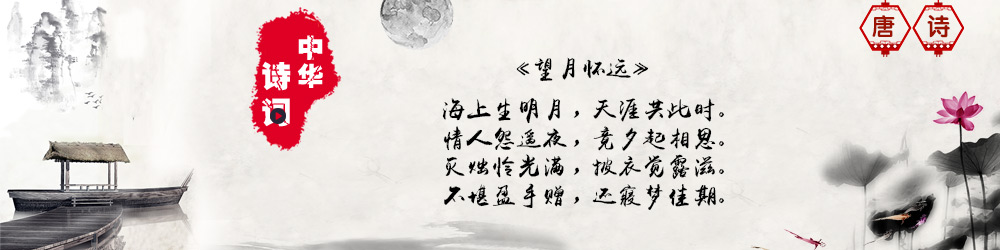 中华
诗词
唐诗
《望月怀远》
海上生明月，天涯共此时。
情人怨遥夜，竞夕起相思。
灭烛怜光满，披衣觉露滋。
不堪盈手赠，还寝梦佳期。